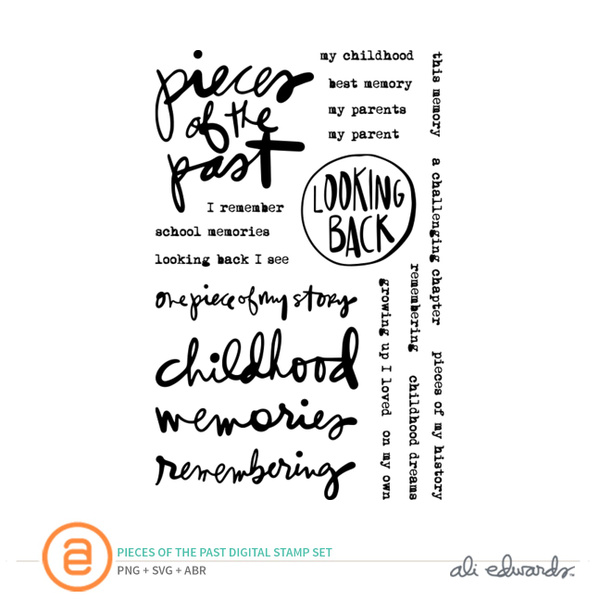 pieces
of the
past
my childhood
best memory
my parents
my parent
LOOKING
BACK
I remember
school memories
looking back I see
one piece of my story
childhood
memories
remembering
this memory
a challenging chapter
pieces of my history
remembering
childhood dreams
growing up I loved
on my own
a
PIECES OF THE PAST DIGITAL STAMP SET
PNG + SVG + ABR
ali edwards™